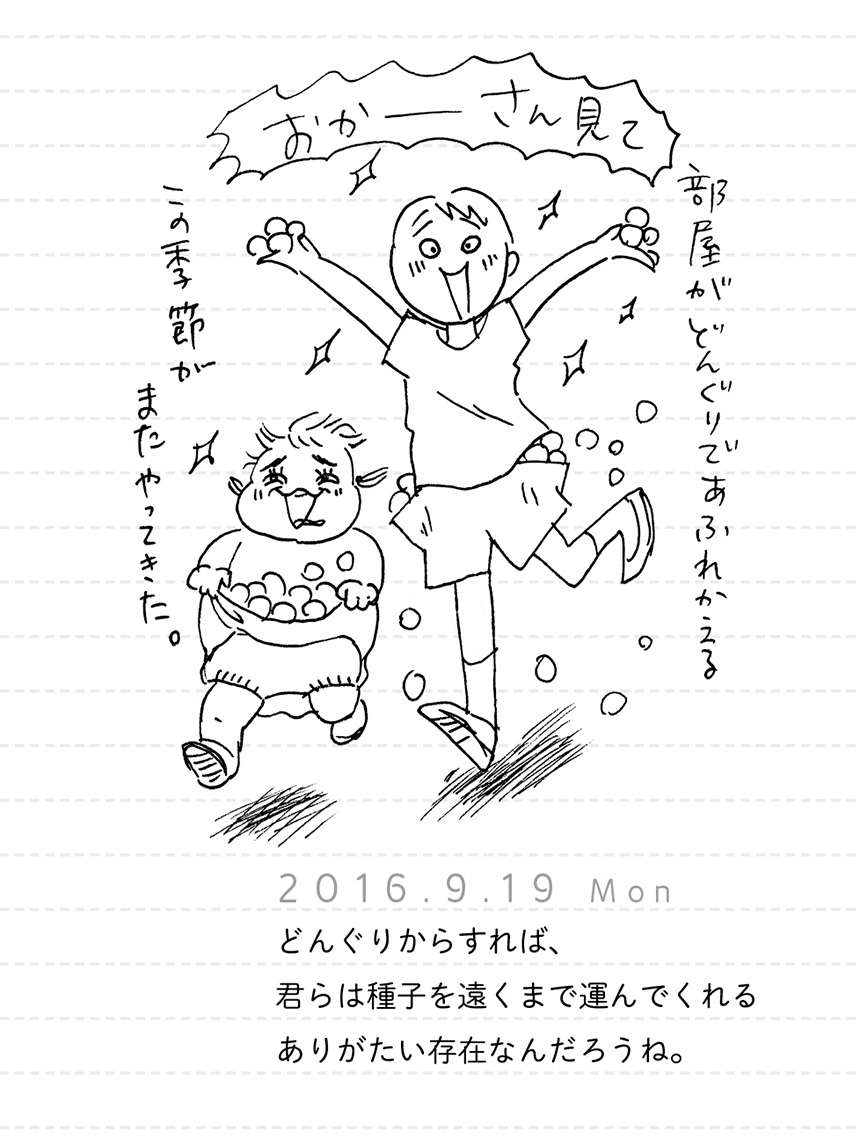 おかーさん見て
部屋がどんぐりであふれかえる
この季節が
またやってきた。
2016.9.19 Mon
どんぐりからすれば、
君らは種子を遠くまで運んでくれる
ありがたい存在なんだろうね。